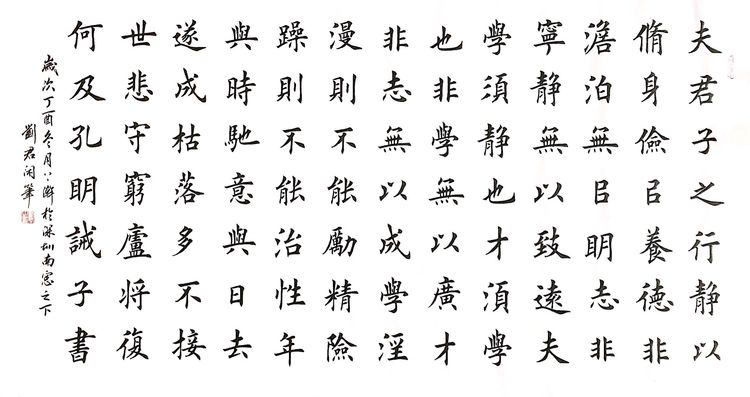 夫君子之行静以
脩身儉㠯養德非
澹泊無㠯明志非
寧静無以致遠夫
學須静也才須學
也非學無以廣才
非志無以成學淫
漫則不能勵精險
躁則不能治性年
與時馳意與日去
遂成枯落多不接
世悲守窮廬將復
何及孔明誡子書
歲次丁酉冬月於深圳南窓之下
劉君闲筆